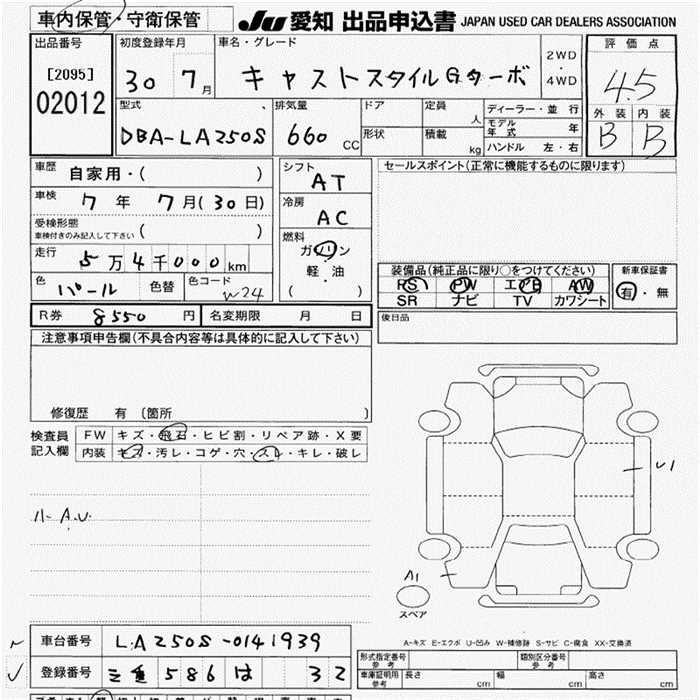 車内保管・守衛保管
JU 愛知 出品申込書 JAPAN USED CAR DEALERS ASSOCIATION
出品番号
[2095]
02012
初度登録年月
30 7月
車名・グレード
キャストスタイルGターボ
2WD
・
4WD
評価点
4.5
外装 内装
B B
型式
DBA-LA250S
排気量
660 CC
ドア
定員
人
形状
積載
kg
ディーラー・並行
モデル年式 年
ハンドル 左・右
車歴
自家用・( )
車検
7年 7月(30日)
受検形態
車検付きのみ記入して下さい ( )
走行
5万4千000km
色
パール
色替
色コード
W24
シフト
AT
冷房
AC
燃料
ガソリン
軽・油
( )
セールスポイント(正常に機能するものに限ります)
装備品(純正品に限り○をつけてください)
PS PW エアB AW
SR ナビ TV カワシート
新車保証書
有・無
R券 8550円
名変期限 月 日
後日品
注意事項申告欄(不具合内容等は具体的に記入して下さい)
修復歴 有 〔箇所 〕
検査員
記入欄
FW キズ・飛石・ヒビ割・リペア跡・X要
内装 キズ・汚レ・コゲ・穴・スレ・キレ・破レ
ハ- A.U.
U1
A1
スペア
A-キズ E-エクボ U-凹み W-補修跡 S-サビ C-腐食 XX-交換済
車台番号 LA250S-0141939
登録番号 三重 586 は 32
形式指定番号
参考
類別区分番号
参考
車庫証明用
参考
長さ cm
幅 cm
高さ cm